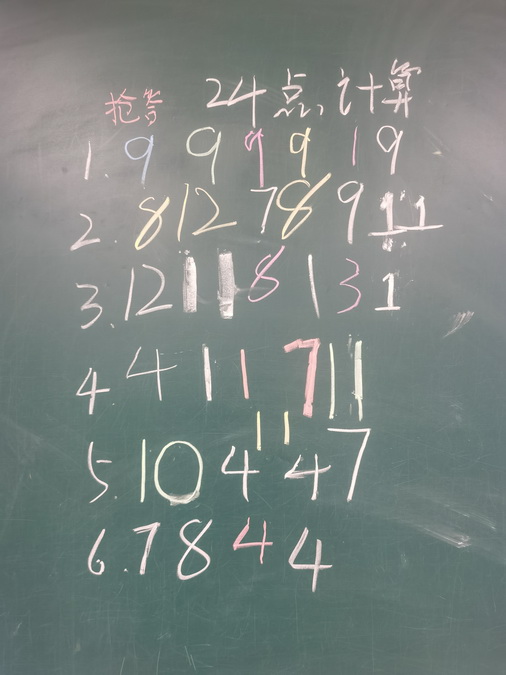 抢答 24点计算
1. 9 9 9 9 19
2. 8 12 7 8 9 11
3. 12 11 8 1 3 1
4. 4 1 1 7 11
11
5. 10 4 4 7
6. 7 8 4 4